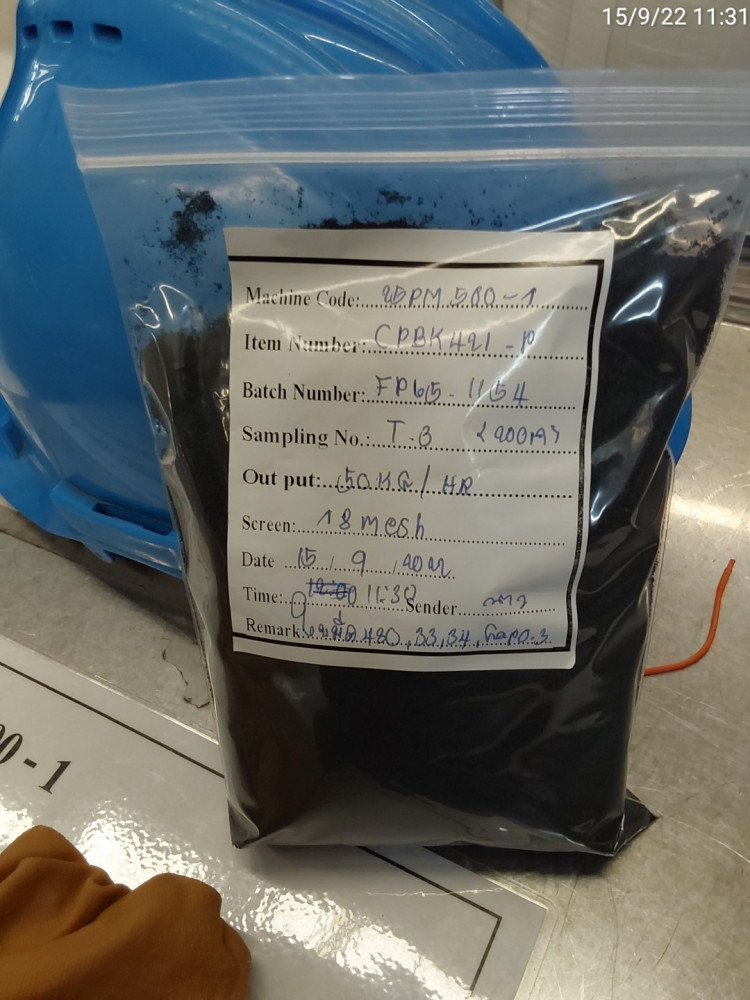 15/9/22 11:31
Machine Code: 25PM 500-1
Item Number: CPBK421-P
Batch Number: FP65-1154
Sampling No.: T-3
Out put: 50 KG/HR
Screen: 18 mesh
Date 15/9/2022
Time: 11:30 Sender
Remark: 480, 33, 34,
00-1